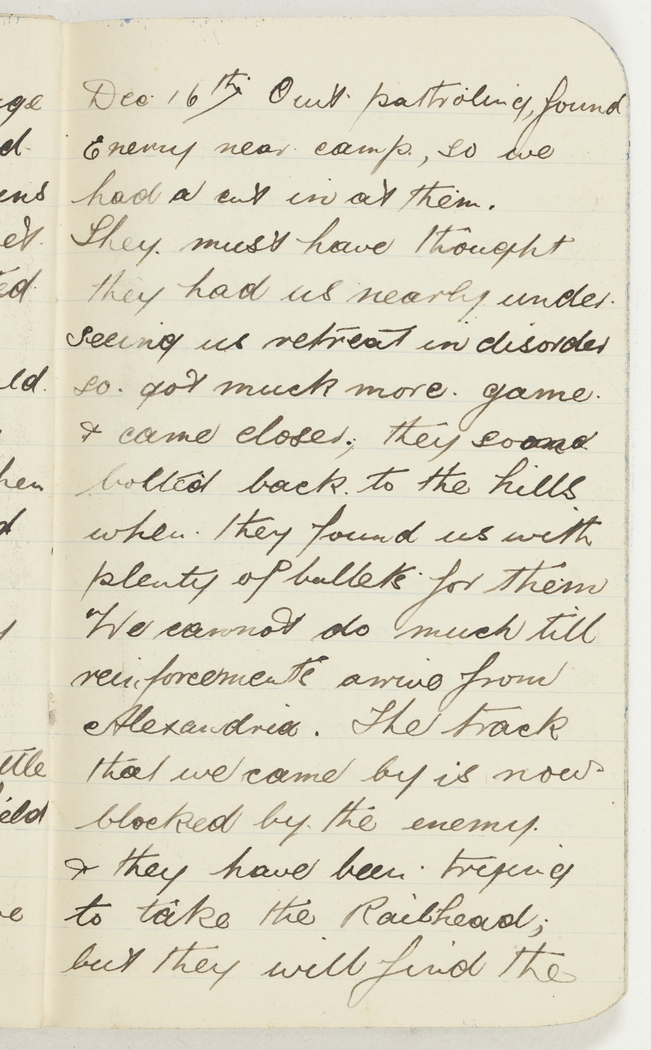 Dec 16th Out patroling, found
Enemy near camp, so we
had a cut in at them.
They must have thought
they had us nearly under
seeing us retreat in disorder
so. got much more. game.
& came closer; they soon
bolted back to the hills
when they found us with
plenty of bullets for them
We cannot do much till
reinforcements arrive from
Alexandria. The track
that we came by is now
blocked by the enemy.
& they have been trying
to take the Railhead;
but they will find the
age
d
ens
et.
ed
ld.
hen
d
y
ttle
ield